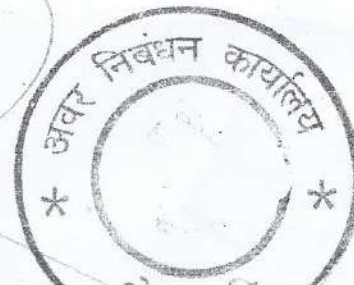 * अवर निबंधन कार्यालय *